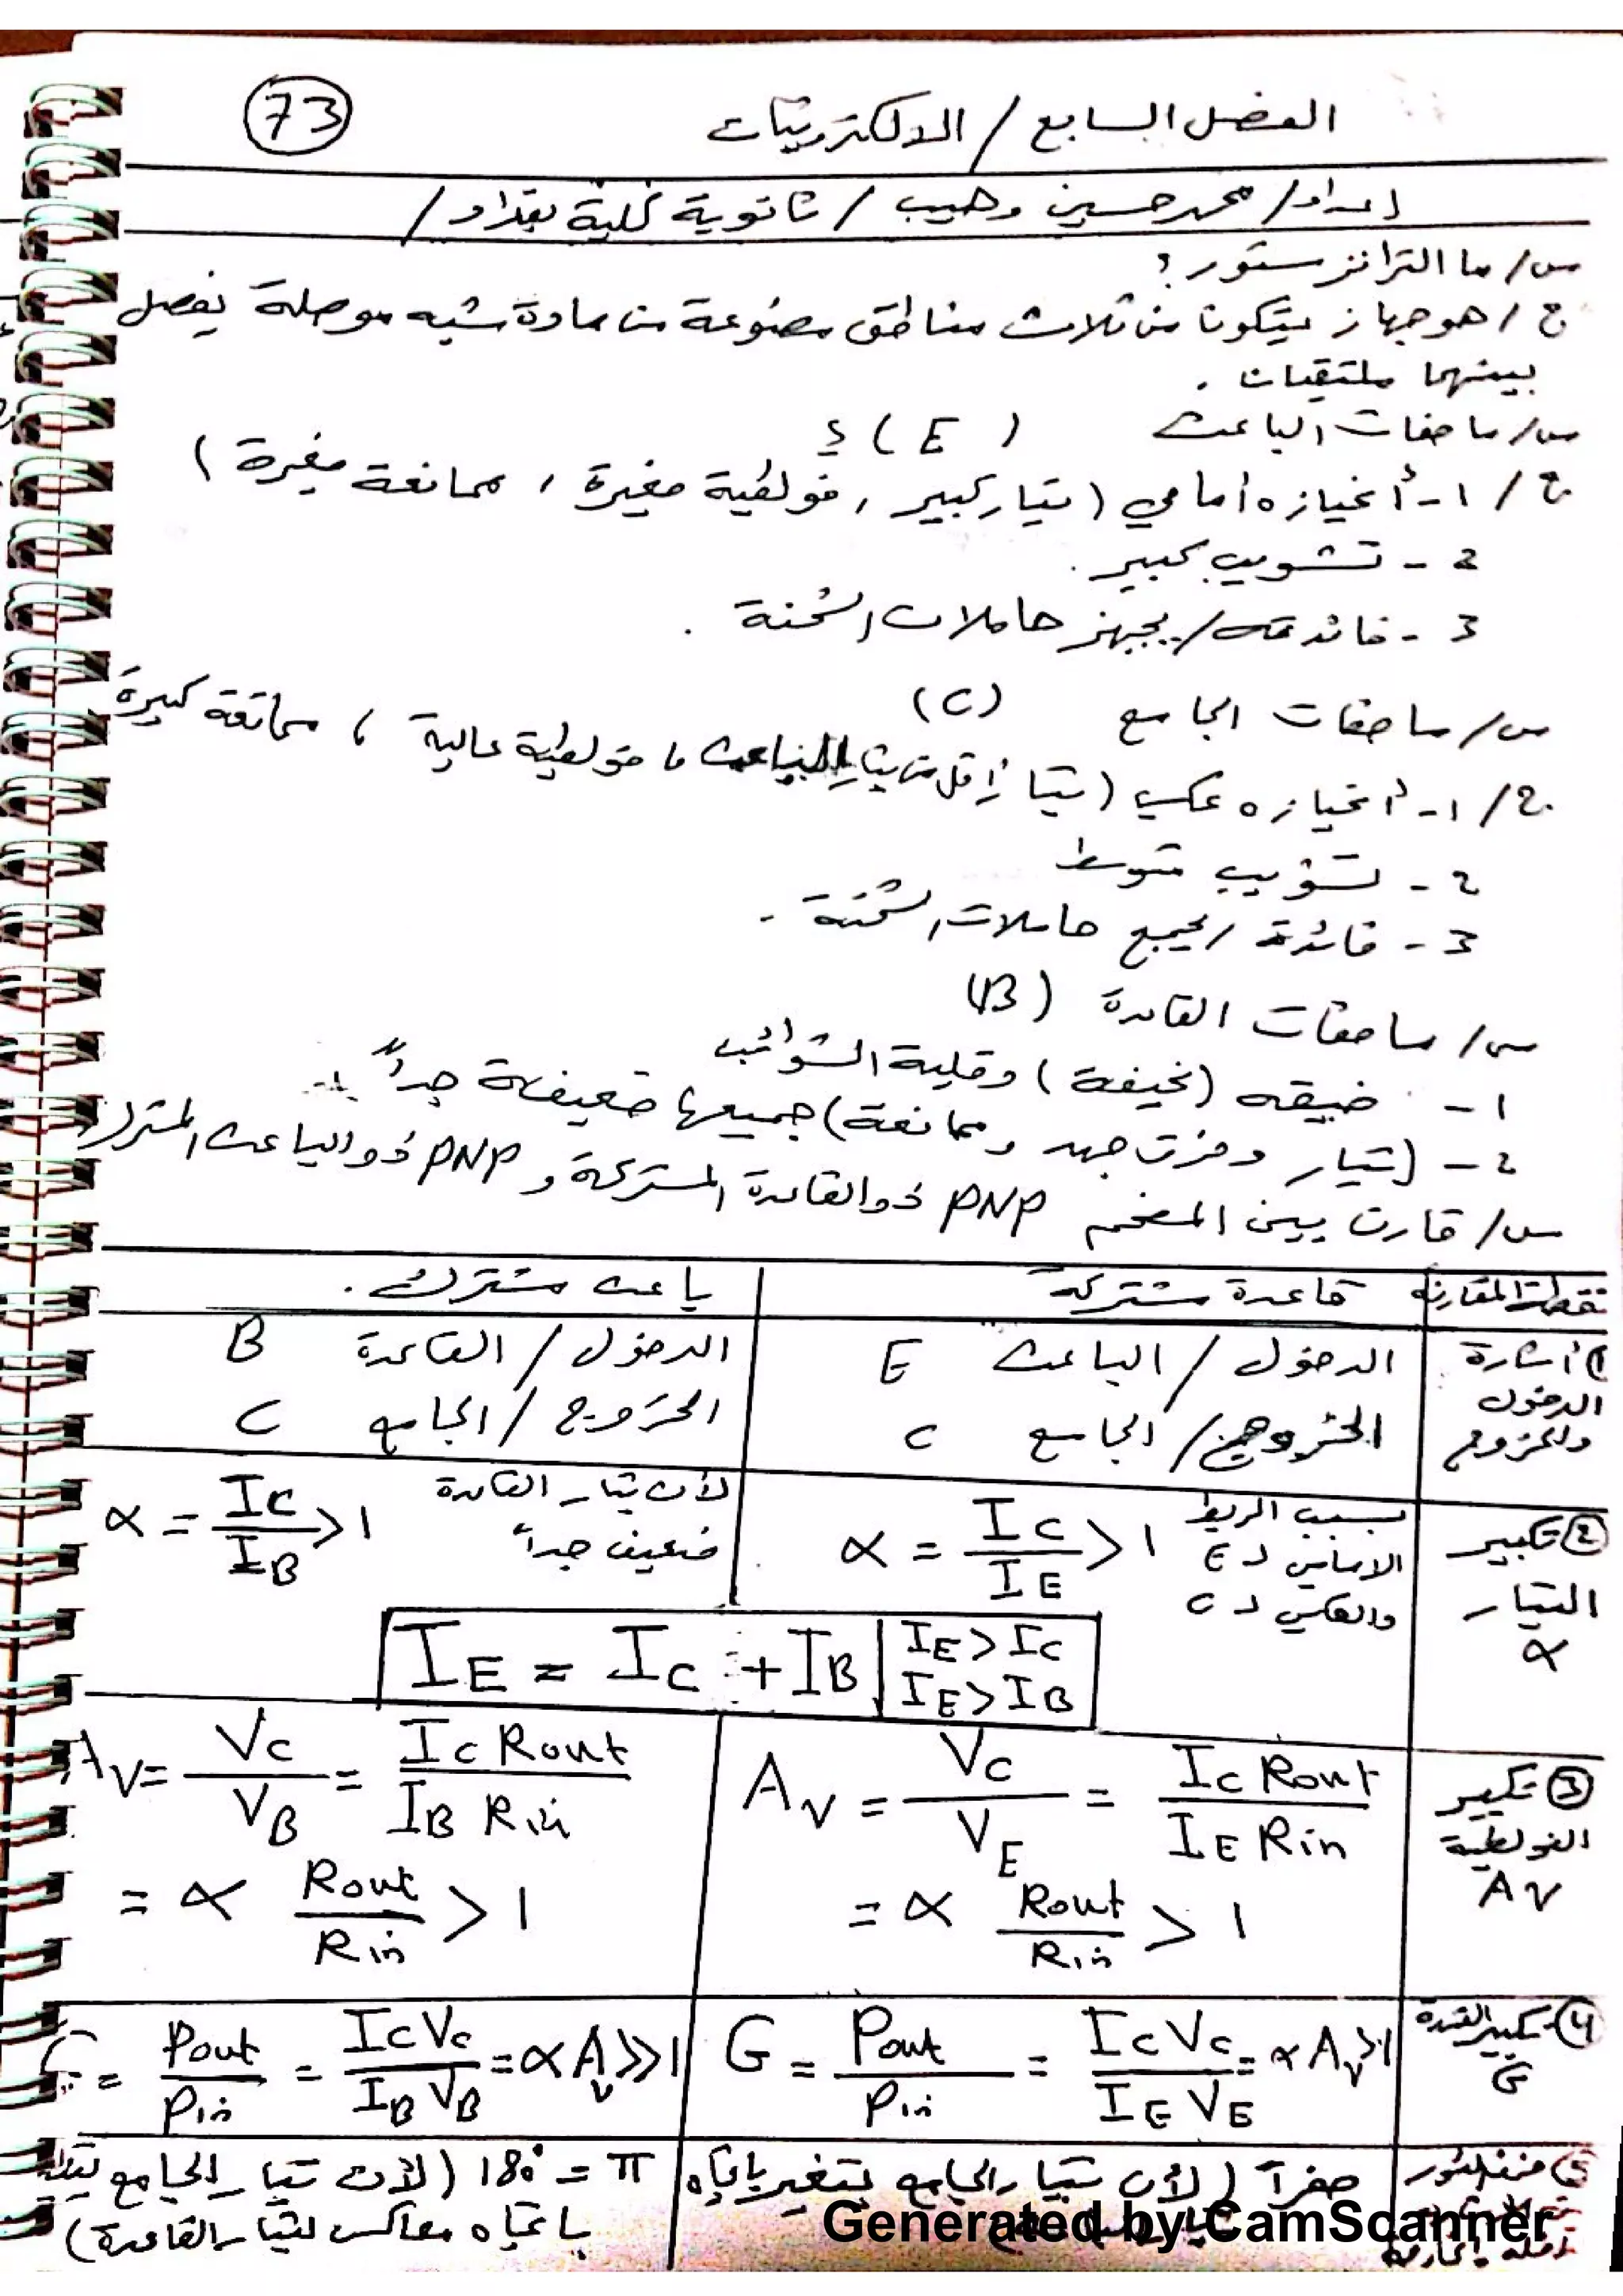 الفصل السابع / الالكترونيات
73
إعداد / محمد حسين وهيب / ثانوية كلية بغداد /
س/ ما الترانزستور؟
ج / هو جهاز يتكون من ثلاث مناطق مصنوعة من مادة شبه موصلة يفصل
بينهما ملتقيان .
س/ ما صفات الباعث (E) ؟
ج / 1- أنحيازه أمامي (تيار كبير ، فولطية صغيرة ، ممانعة صغيرة)
2 - تشويب كبير .
3 - فائدته / يجهز حاملات الشحنة .
س/ ما صفات الجامع (C)
ج / 1- أنحيازه عكسي (تيار أقل من تيار الباعث ، فولطية عالية ، ممانعة كبيرة
2 - تشويب متوسط
3 - فائدة / يجمع حاملات الشحنة .
س/ ما صفات القاعدة (B)
1 - ضيقه (نحيفة) وقليلة الشوائب
2 - (تيار وفرق جهد وممانعة) جميعها ضعيفة جداً
س/ قارن بين المضخم PNP ذو القاعدة المشتركة و PNP ذو الباعث المشترك
نقطة المقارنة قاعدة مشتركة باعث مشترك .
1) أشارة الدخول والخروج
الدخول / الباعث E
الخروج / الجامع C
الدخول / القاعدة B
الخروج / الجامع C
2) تكبير التيار α
بسبب الربط الامامي لـ E والعكسي لـ C
α = IC / IE > 1
لأن تيار القاعدة ضعيف جداً
α = IC / IB > 1
IE = IC + IB
IE > IC
IE > IB
3) تكبير الفولطية AV
AV = VC / VE = IC Rout / IE Rin
= α Rout / Rin > 1
AV = VC / VB = IC Rout / IB Rin
= α Rout / Rin > 1
4) تكبير القدرة G
G = Pout / Pin = IC VC / IE VE = α AV > 1
G = Pout / Pin = IC VC / IB VB = α AV >> 1
5) فرق الطور
صفراً (لأن تيار الجامع يتغير باتجاه
180° = π (لأن تيار الجامع
باتجاه معاكس لتيار القاعدة)
Generated by CamScanner